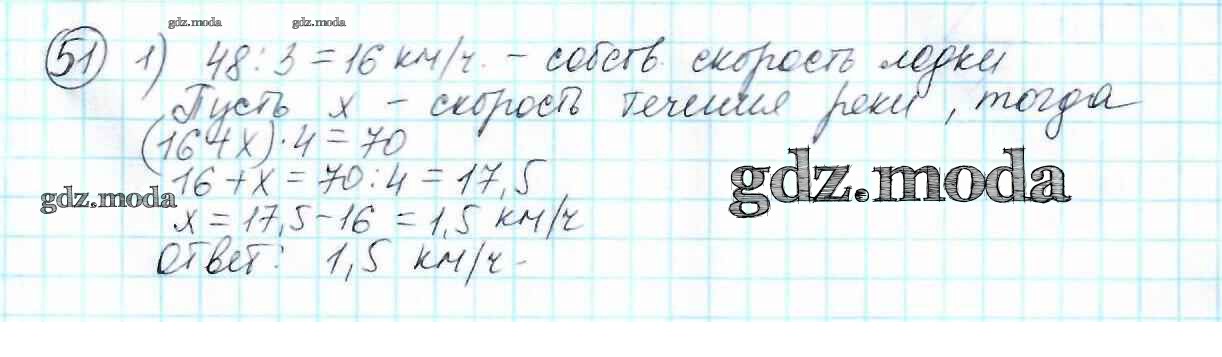 gdz.moda gdz.moda
51 1) 48 : 3 = 16 км/ч. – собств. скорость лодки
Пусть x – скорость течения реки, тогда
(16+x)·4=70
gdz.moda
16+x=70:4=17,5
gdz.moda
x=17,5-16=1,5 км/ч
Ответ: 1,5 км/ч.